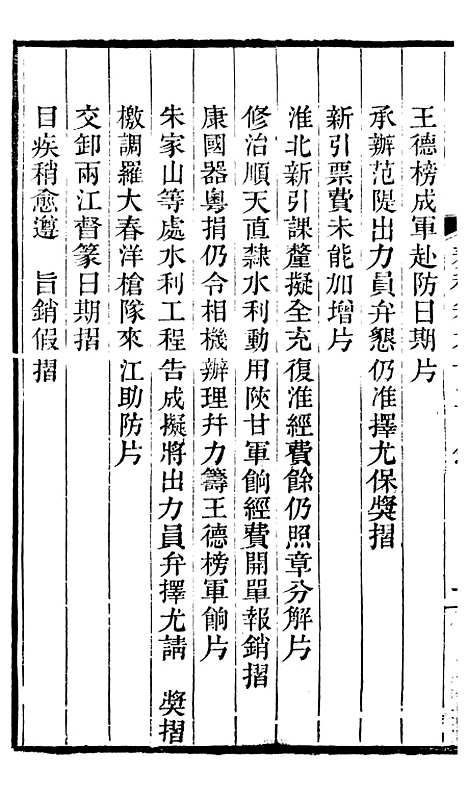 王德榜成軍赴防日期片
承辦范隄出力員弁懇仍准擇尤保獎摺
新引票費未能加增片
淮北新引課釐擬全充復淮經費餘仍照章分解片
修治順天直隸水利動用陝甘軍餉經費開單報銷摺
康國器粵捐仍令相機辦理幷力籌王德榜軍餉片
朱家山等處水利工程告成擬將出力員弁擇尤請　獎摺
檄調羅大春洋槍隊來江助防片
交卸兩江督篆日期摺
目疾稍愈遵　旨銷假摺